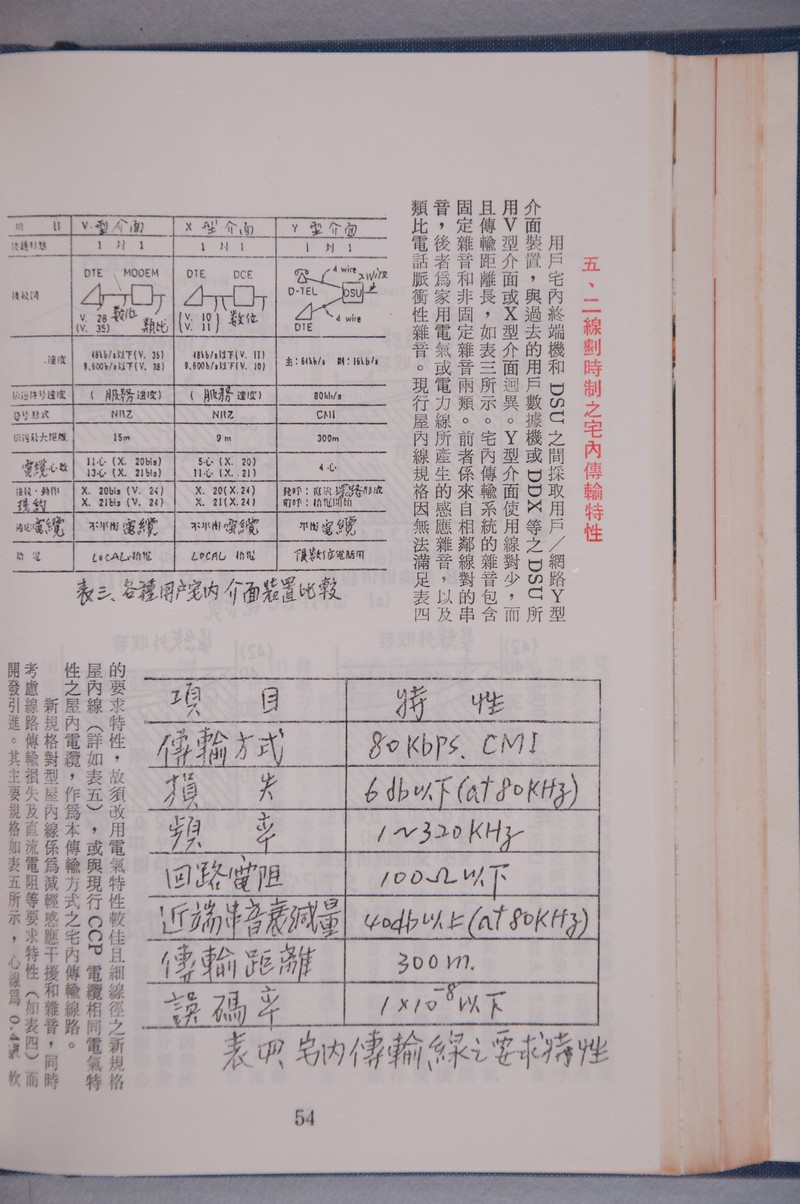 五、二線劃時制之宅內傳輸特性
用戶宅內終端機和 DSU 之間採取用戶／網路Y型
介面裝置，與過去的用戶數據機或 DDX 等之 DSU 所
用V型介面或X型介面迥異。Y型介面使用線對少，而
且傳輸距離長，如表三所示。宅內傳輸系統的雜音包含
固定雜音和非固定雜音兩類。前者係來自相鄰線對的串
音，後者為家用電氣或電力線所產生的感應雜音，以及
類比電話脈衝性雜音。現行屋內線規格因無法滿足表四
V 型介面 X 型介面 Y 型介面
1 對 1 1 對 1 1 對 1
DTE MODEM DTE DCE 4 wire 2 wire
D-TEL DSU
V. 28 數位 類比 V. 10 數位 4 wire
(V. 35) (V. 11) DTE
速度 48kb/s以下(V. 35) 48kb/s以下(V. 11) 主：64kb/s 副：16kb/s
9,600b/s以下(V. 28) 9,600b/s以下(V. 10)
(服務速度) (服務速度) 80kb/s
NRZ NRZ CMI
15m 9m 300m
電纜心數 11心 (X. 20bis) 5心 (X. 20) 4心
13心 (X. 21bis) 11心 (X. 21)
X. 20bis (V. 24) X. 20(X.24)
規約 X. 21bis (V. 24) X. 21(X.24)
電纜 不平衡電纜 不平衡電纜 平衡電纜
LOCAL給電 LOCAL 給電
表三、各種用户宅內介面裝置比較
的要求特性，故須改用電氣特性較佳且細線徑之新規格
屋內線（詳如表五），或與現行 CCP 電纜相同電氣特
性之屋內電纜，作為本傳輸方式之宅內傳輸線路。
新規格對型屋內線係為減輕感應干擾和雜音，同時
考慮線路傳輸損失及直流電阻等要求特性（如表四）而
開發引進。其主要規格如表五所示，心線為 0.4 軟
項 目 特 性
傳輸方式 80Kbps. CMI
損 失 6db以下(at 80KHz)
頻 率 1~320KHz
回路電阻 100Ω以下
近端串音衰減量 40db以上(at 80KHz)
傳輸距離 300m.
誤碼率 1×10⁻⁸以下
表四 宅內傳輸線之要求特性
54